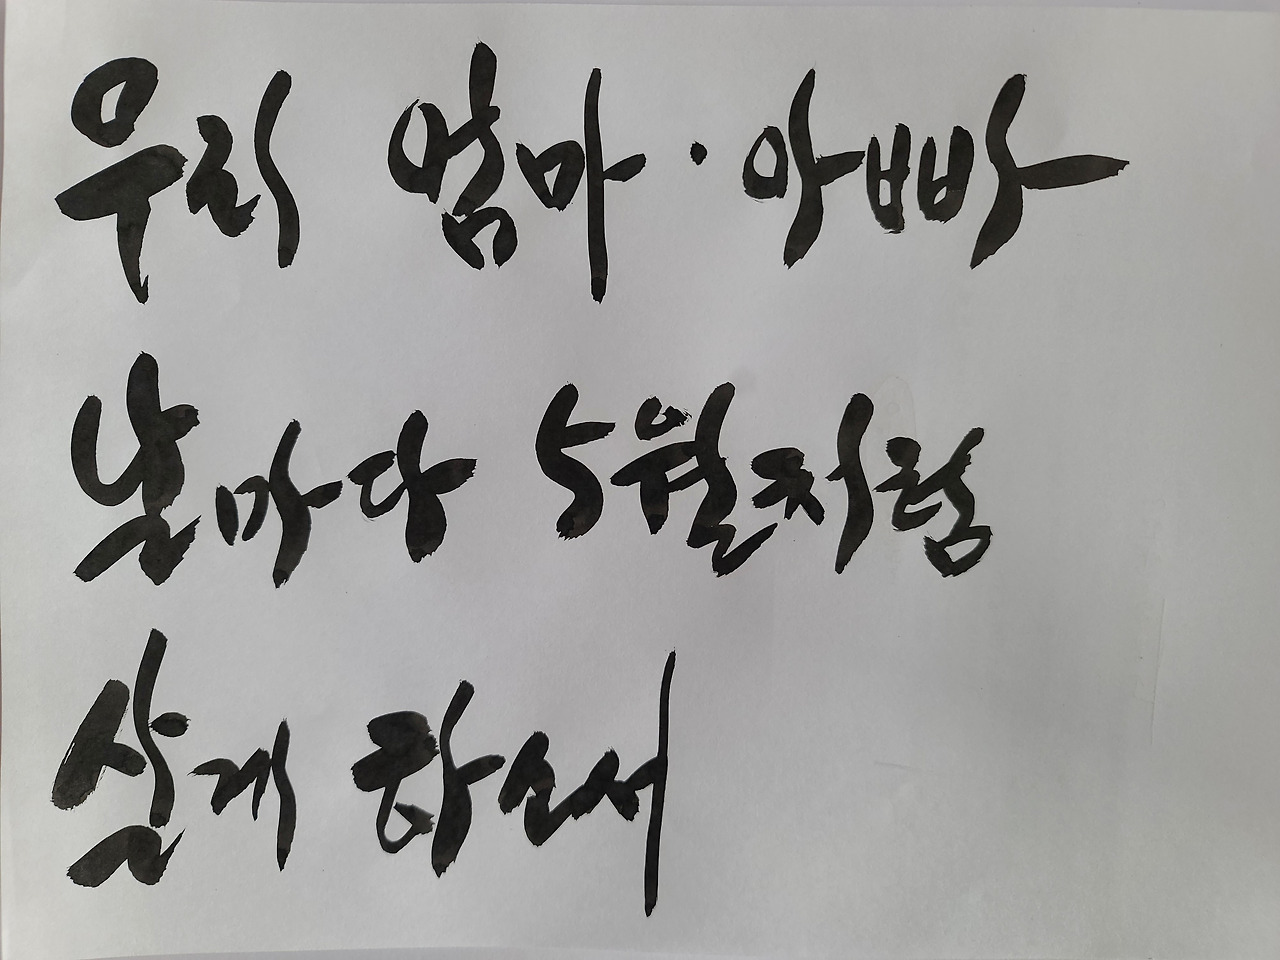 우리 엄마·아빠
날마다 5월처럼
살게 하소서